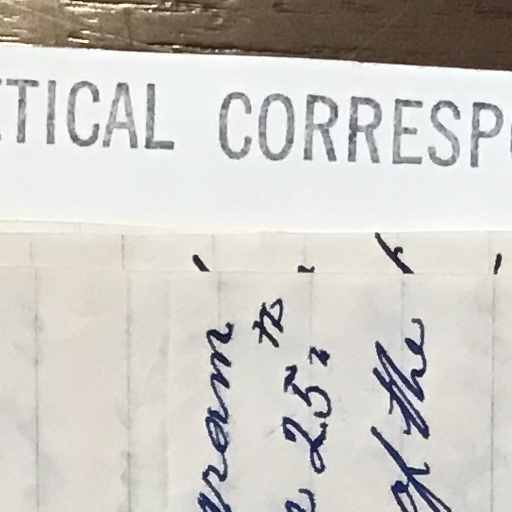 gram
25th
of the
TICAL CORRESP